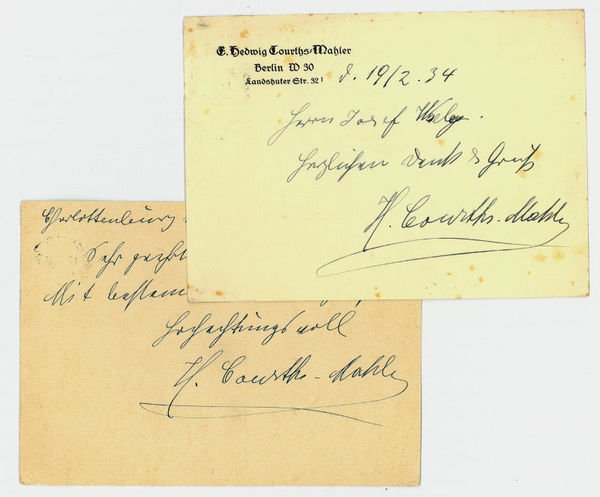 E. Hedwig Courths-Mahler
Berlin W 30
Landshuter Str. 32 I
d. 19/2. 34
Herrn Josef
Herzlichen Dank & Gruß
H. Courths-Mahler
Charlottenburg
Sehr geehr
Mit bestem
hochachtungsvoll
H. Courths-Mahler